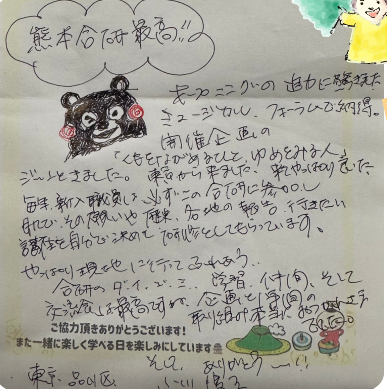 熊本合研最高!!
オープニングの迫力に驚きました
ミュージカル、フォーラムで納得。
開催企画の
「くもをながめるひと、ゆめをみる人」
ジーンときました。東京から来ました。来てやっぱり良かった
毎年、新入職員は必ずこの合研に参加し
その願いや歴史、各地の報告、行きたい
講座を自分で決めて研修としてもらっています。
やっぱり現地に行って
合研の 学習、仲間、そして
交流会は最高ですね。企画と仲間の
取り組み本当にありがとう
ご協力頂きありがとうございます!
また一緒に楽しく学べる日を楽しみにしています
そして ありがとう〜!!
東京 品川区